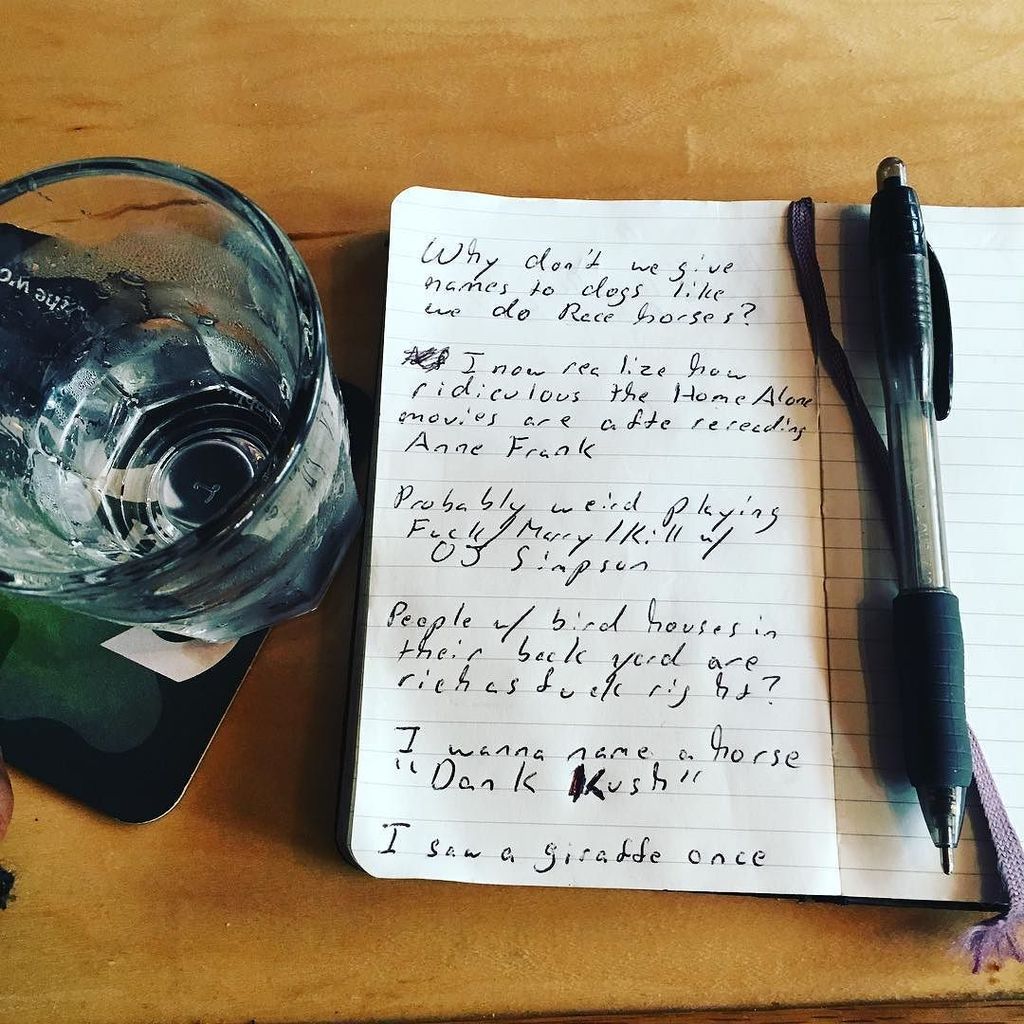 the w
Why don't we give
names to dogs like
we do Race horses?
I now realize how
ridiculous the Home Alone
movies are afte rereading
Anne Frank
Probably weird playing
Fuck/Marry/Kill w/
OJ Simpson
People w/ bird houses in
their back yard are
rich as fuck right?
I wanna name a horse
"Dank Kush"
I saw a giraffe once